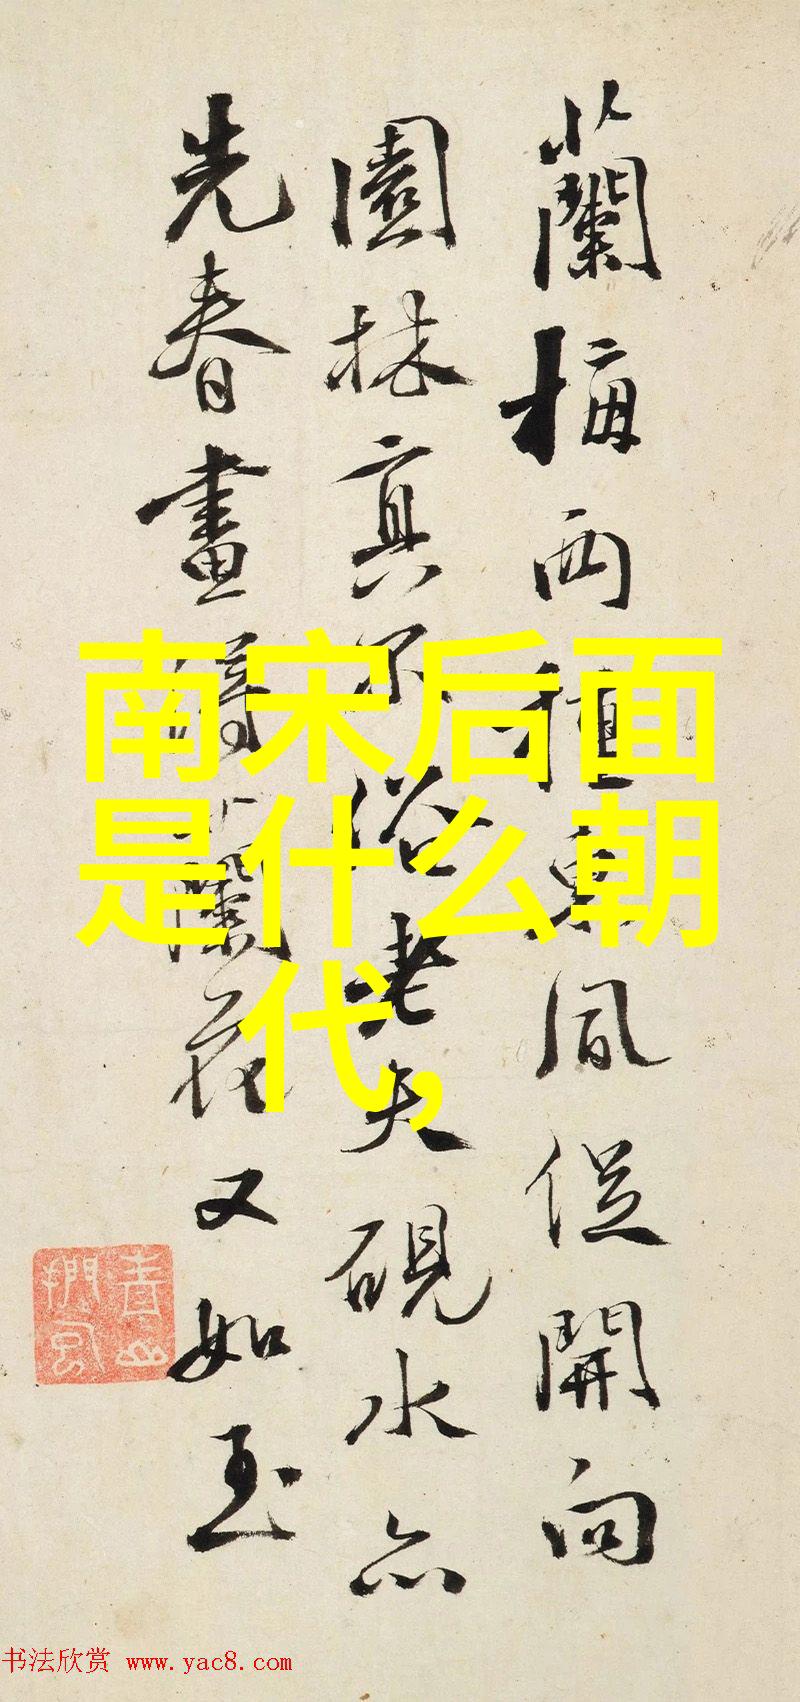 蘭梅兩種東風從開向
園林真不俗老夫硯水亦
先春畫得蘭花又如玉
南宋后面
是什么朝
代，
书法欣赏 www.yac8.com